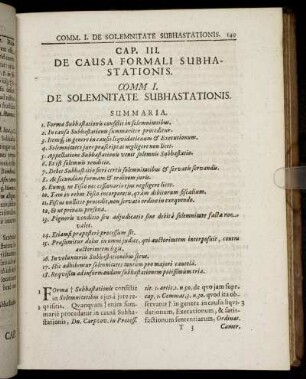 COMM. I. DE SOLEMNITATE SUBHASTATIONIS. 149
CAP. III.
DE CAUSA FORMALI SUBHA-
STATIONIS.
COMM I.
DE SOLEMNITATE SUBHASTATIONIS.
SUMMARIA.
1. Forma Subhastationis consistit in solemnitatibus.
2. In causa Subhastationis summariter proceditur.
3. Itemq́; in causis liquidationum & Executionum.
4. Solemnitates jure præscriptas negligere non licet.
5. Appellatione Subhastationis venit solennis Subhastatio.
6. Et est solemnis venditio.
7. Debet Subhastatio fieri certis solemnitatibus & servatis servandis.
8. Ac secundum formam & ordinem juris.
9. Eumq́; nec Fiscus necessarios ejus negligere licet.
10. Tam in rebus Fisco incorporatis, quàm debitorum fiscalium.
11. Fiscus nullitèr procedit, non servato ordine in exequendo.
12. Et ut privata persona.
13. Pignoris venditio seu adjudicatio sine debitâ solemnitate facta non va-
valet.
14. Etiamsi properâri processum sit.
15. Præsumitur dolus in omni judice, qui auctoritatem interposuit, contra
auctoritatem ejus.
16. In voluntariis Subhastationibus secus.
17. Hic adhibentur solemnitates tantùm pro majori cautelâ.
18. Requisita ad informandum subhastationem potissimùm tria.
1 Forma † Subhastationis consistit
in Solemnitatibus ejus à jure re-
quisitis. Quanquam † enim sum-
mariè procedatur in causâ Subha-
stationis, Dn. Carpzov. in Process.
tit. 1. artic. 2. n. 30. quod ita ob-
servatur † in genere in causis liqui- 3
dationum, Executionum, & satis-
factionum sententiarum, Ordinat.
T 3 Camer.